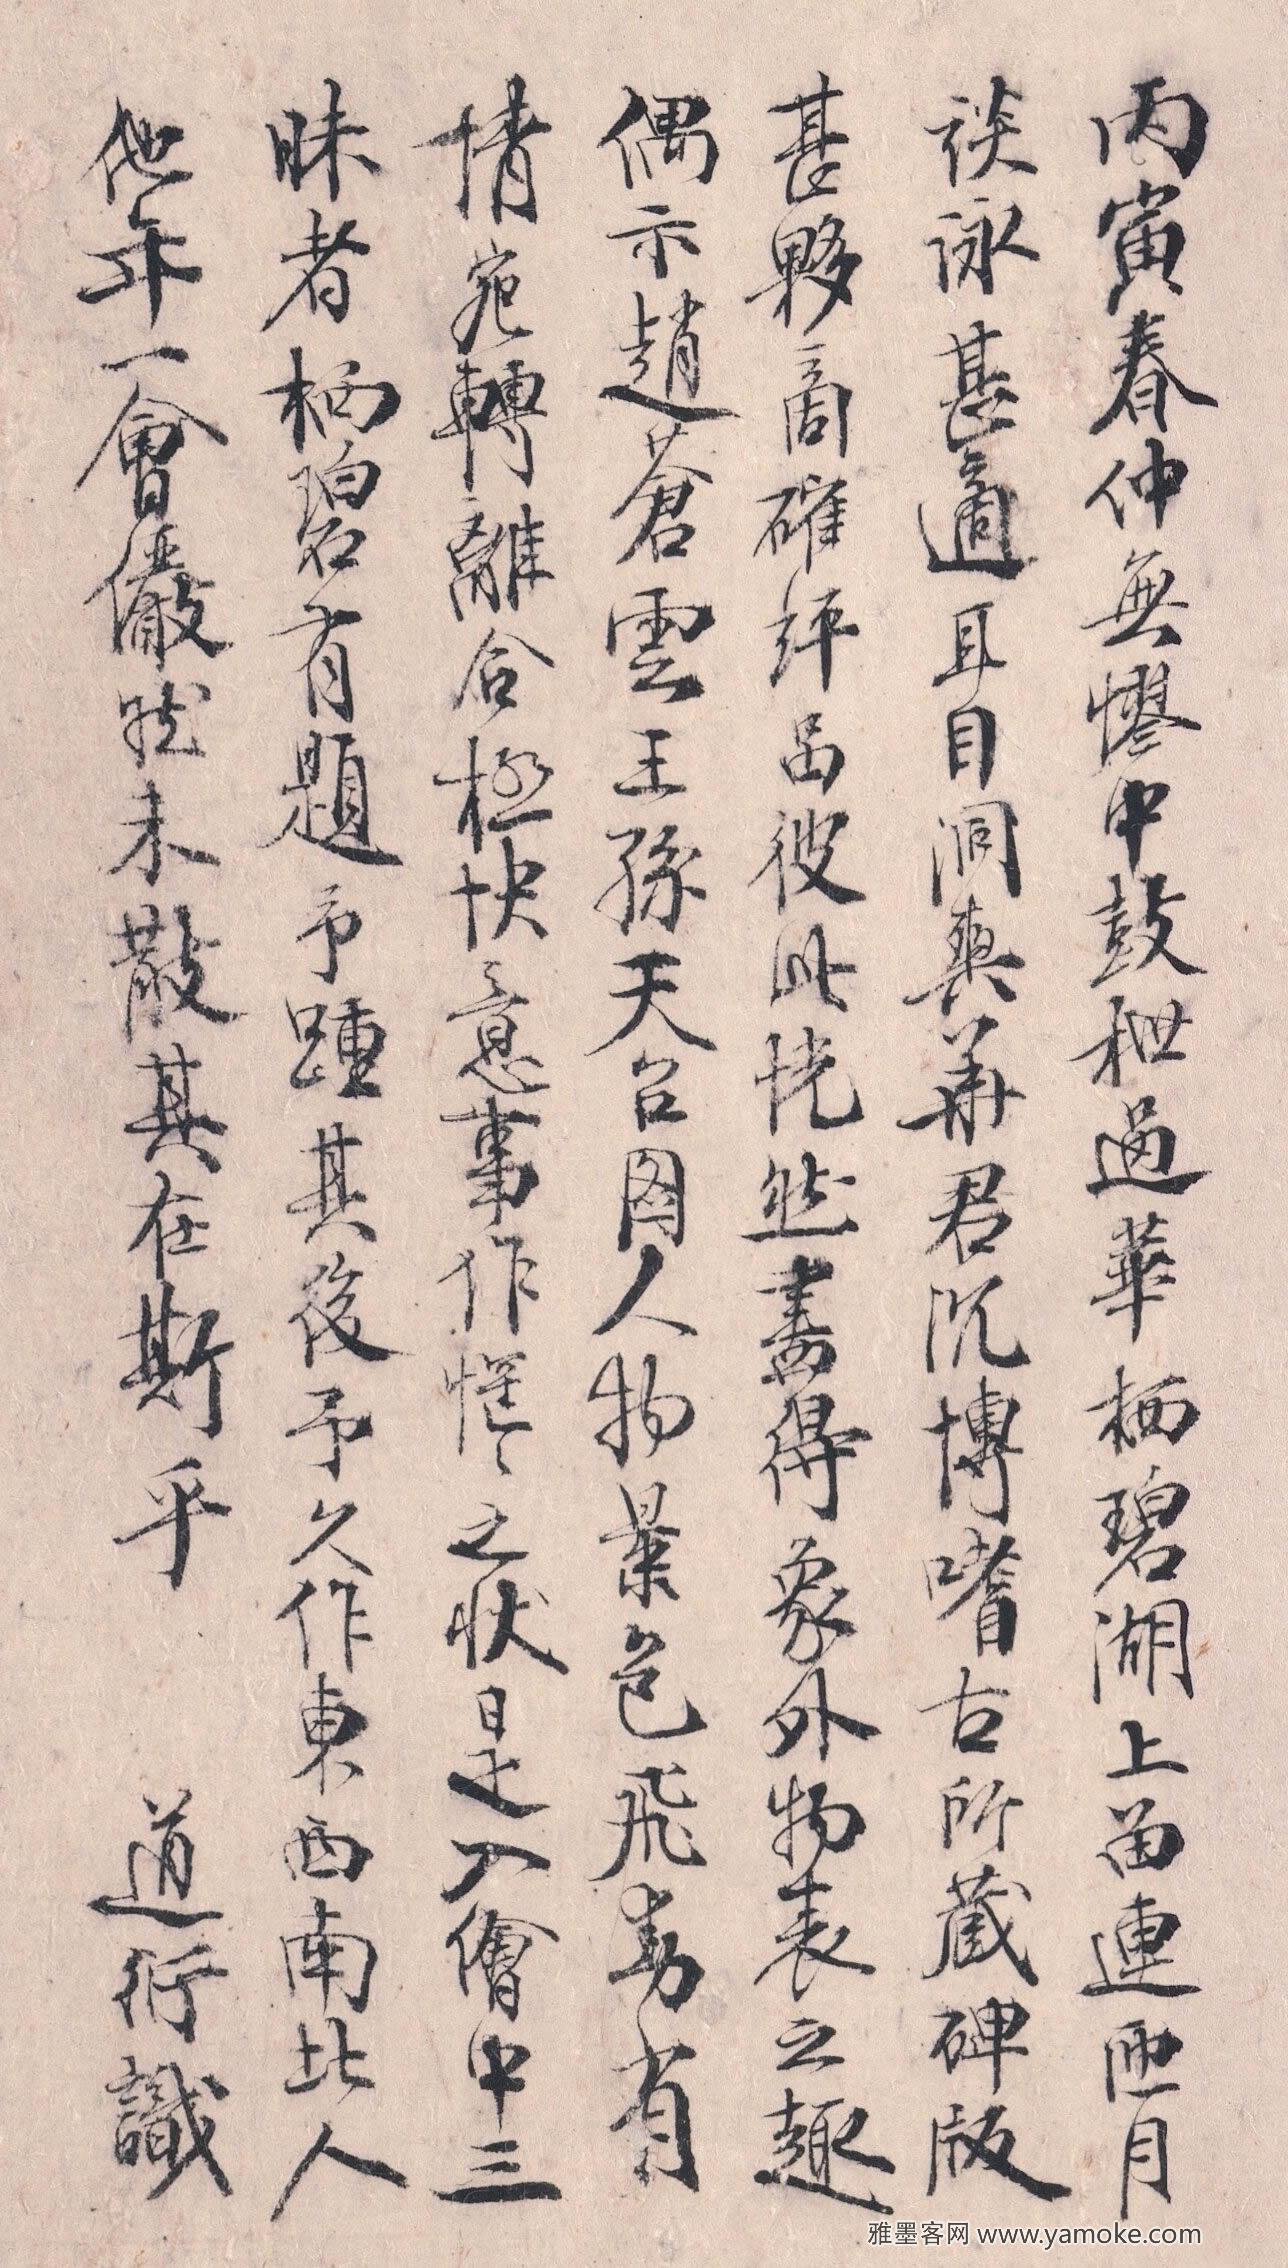 丙寅春仲無憀中鼓枻過華栖碧湖上留連匝月
談詠甚適耳目洞爽華君沉博嗜古所蔵碑版
甚夥商確評品彼此恍然盡得象外物表之趣
偶示趙蒼雲王孫天台图人物景色飛動有
情宛轉離合極快意事作惝恍之状是入繪中三
昧者栖碧有題予踵其後予久作東西南北人
他年一會儼然未散其在斯乎
道衍識
雅墨客网 www.yamoke.com